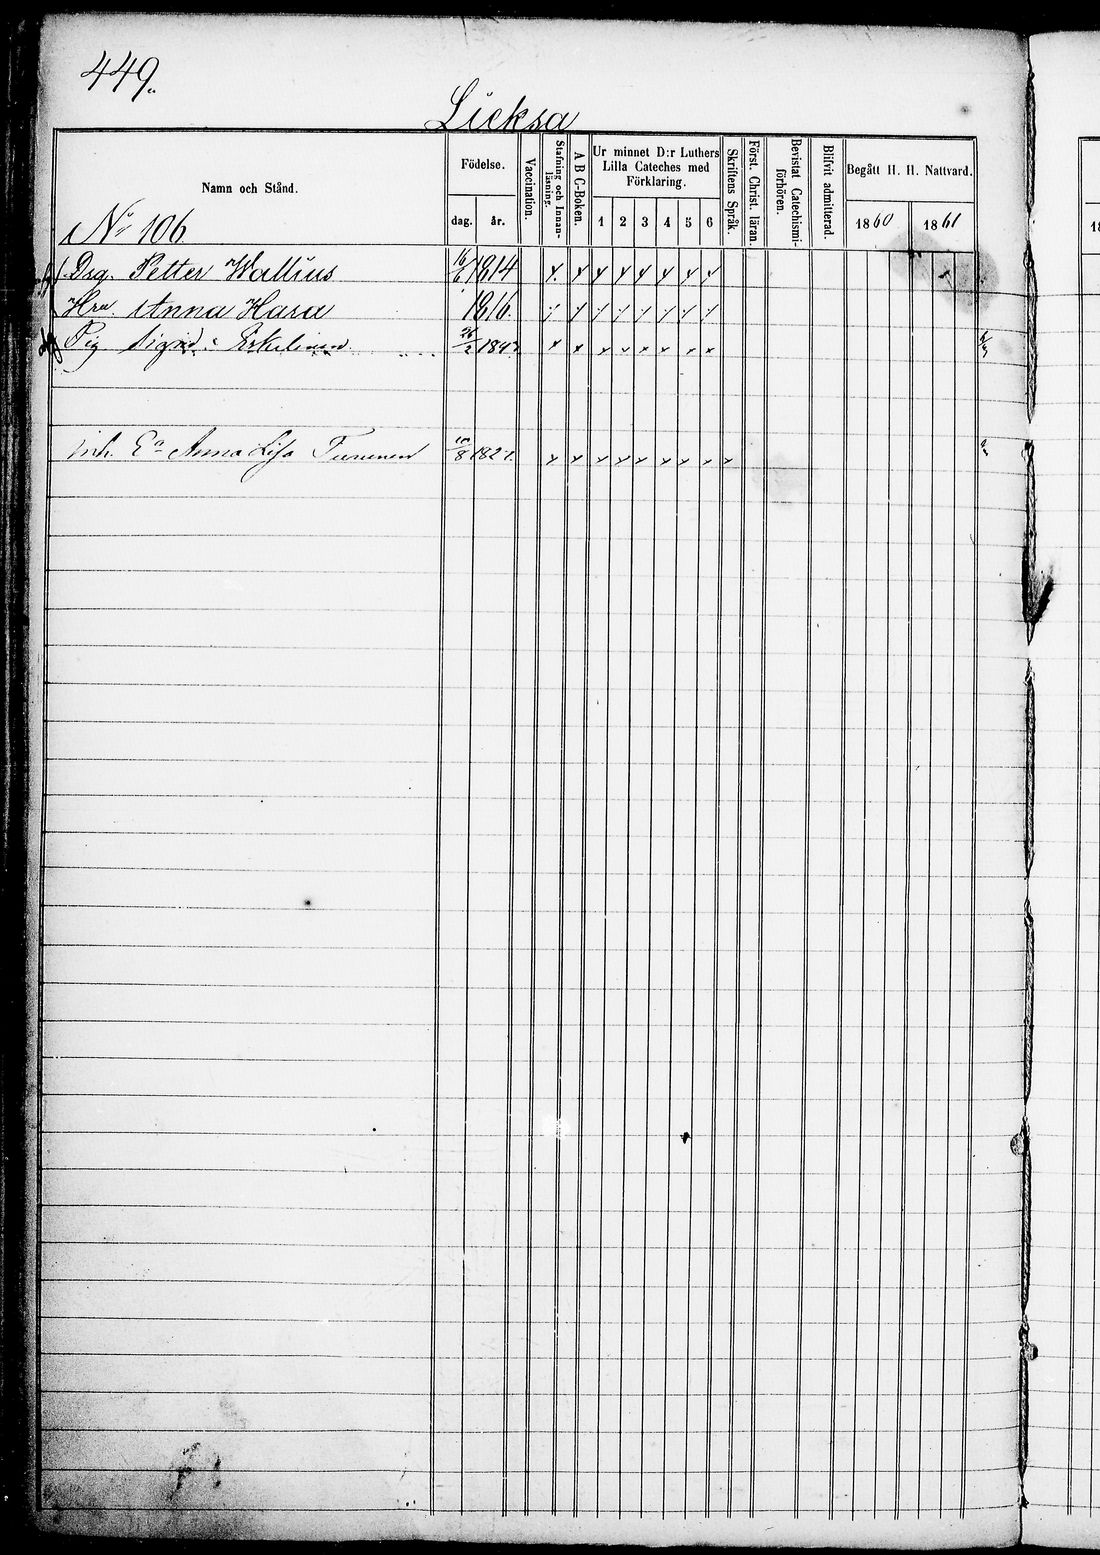 449.
Lieksa
Namn och Stånd.
Födelse.
dag. år.
Vaccination.
Stafning och Innanläsning.
A B C-Boken.
Ur minnet D:r Luthers
Lilla Cateches med
Förklaring.
1 2 3 4 5 6
Skriftens Språk.
Först. Christ. läran.
Bevistat Catechismi-
förhören.
Blifvit admitterad.
Begått H. H. Nattvard.
1860 1861
No 106
Drg. Petter Wallius 16/6 1814 x x x x x x x x
Hru. Anna Hara 1816.
Pig Sigrid Eskelinen 26/2 184 x x x x x x x x
Inh. Ea Anna Lisa Turunen 10/8 182 x x x x x x x x x